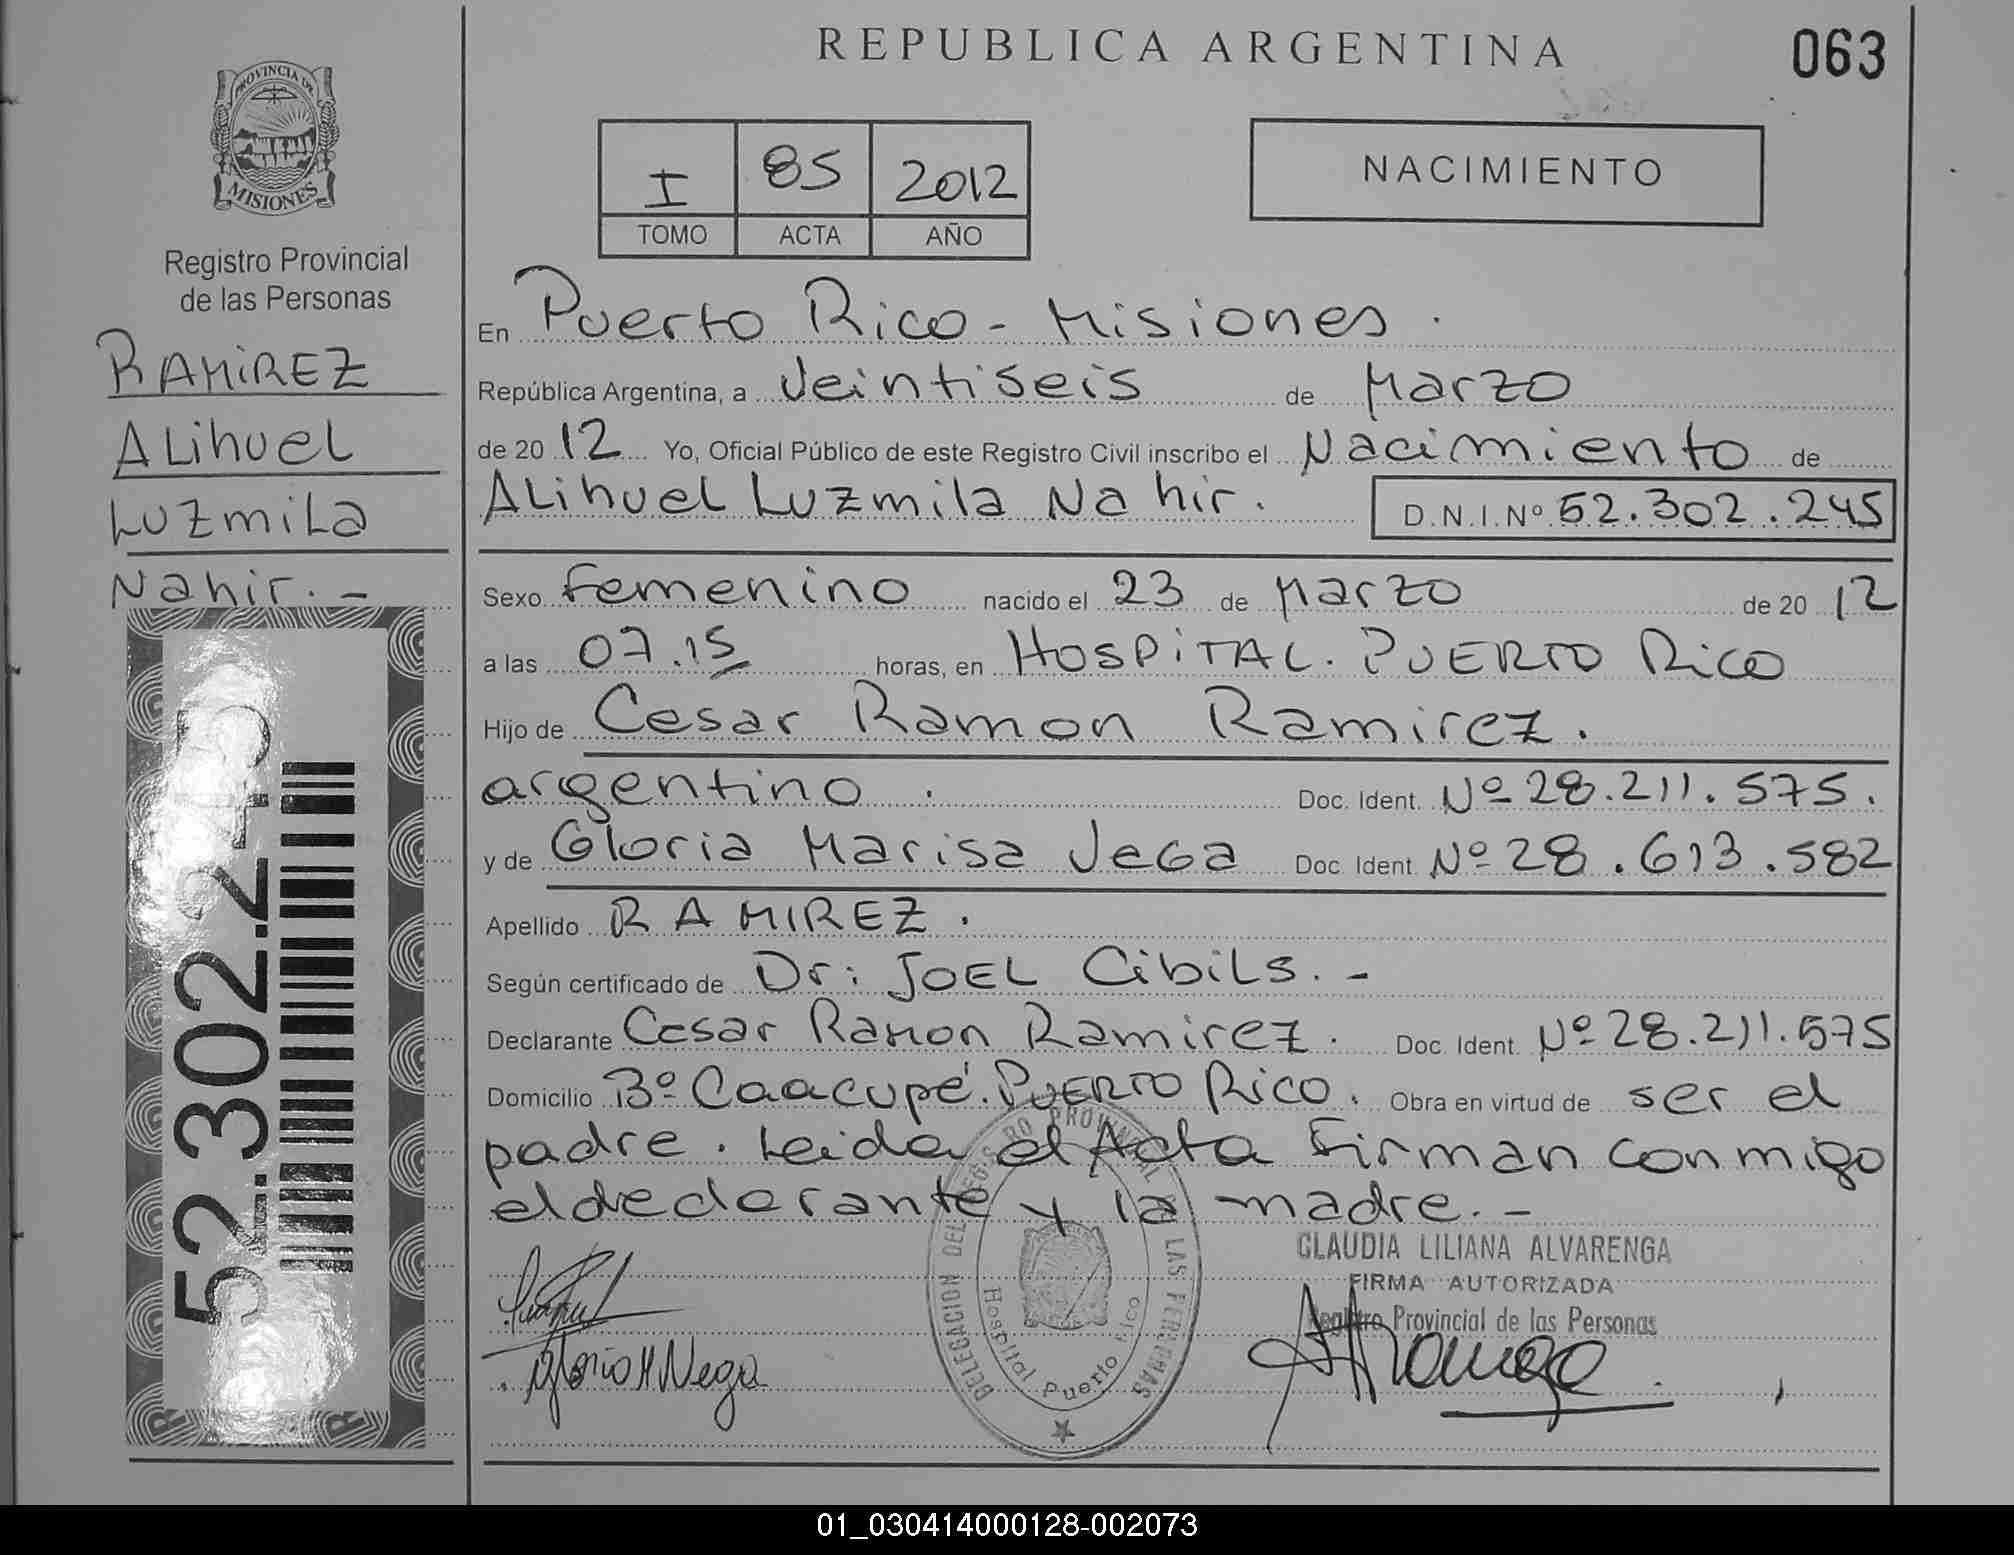 REPUBLICA ARGENTINA
063
PROVINCIA DE
MISIONES
Registro Provincial
de las Personas
RAMIREZ
ALihuel
Luzmila
Nahir. -
52.302.245
I 85 2012
TOMO ACTA AÑO
NACIMIENTO
En Puerto Rico - Misiones.
República Argentina, a Veintiseis de Marzo
de 20 12 Yo, Oficial Público de este Registro Civil inscribo el Nacimiento de
ALihuel Luzmila Nahir. D.N.I.Nº 52.302.245
Sexo Femenino nacido el 23 de Marzo de 20 12
a las 07.15 horas, en HOSPITAL. PUERTO Rico
Hijo de Cesar Ramon Ramirez.
argentino. Doc. Ident. Nº 28.211.575.
y de Gloria Marisa Vega Doc. Ident. Nº 28.613.582
Apellido RAMIREZ.
Según certificado de Dr: JOEL Cibils. -
Declarante Cesar Ramon Ramirez. Doc. Ident. Nº 28.211.575
Domicilio Bº Caacupé. PUERTO Rico. Obra en virtud de ser el
padre. Leida el Acta Firman conmigo
el declarante y la madre. -
CLAUDIA LILIANA ALVARENGA
FIRMA AUTORIZADA
Registro Provincial de las Personas
DELEGACION DEL REGISTRO PROVINCIAL DE LAS PERSONAS
Hospital Puerto Rico
Gloria M Vega
01_030414000128-002073